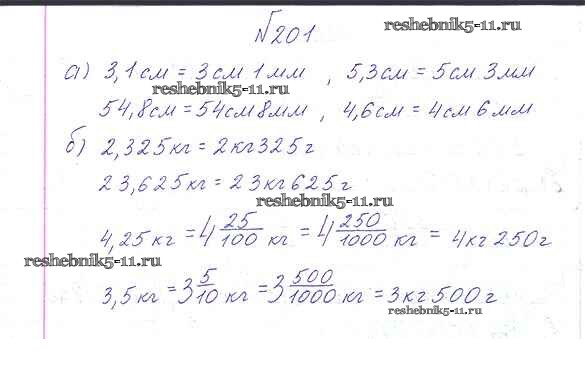 reshebnik5-11.ru
№201
а) 3,1см = 3см 1мм , 5,3см = 5см 3мм
reshebnik5-11.ru
54,8см = 54см8мм , 4,6см = 4см 6мм
б) 2,325кг = 2кг325г
23,625кг = 23кг625г
reshebnik5-11.ru
4,25кг = 4 25/100 кг = 4 250/1000 кг = 4кг 250г
reshebnik5-11.ru
3,5кг = 3 5/10 кг = 3 500/1000 кг = 3кг 500г
reshebnik5-11.ru